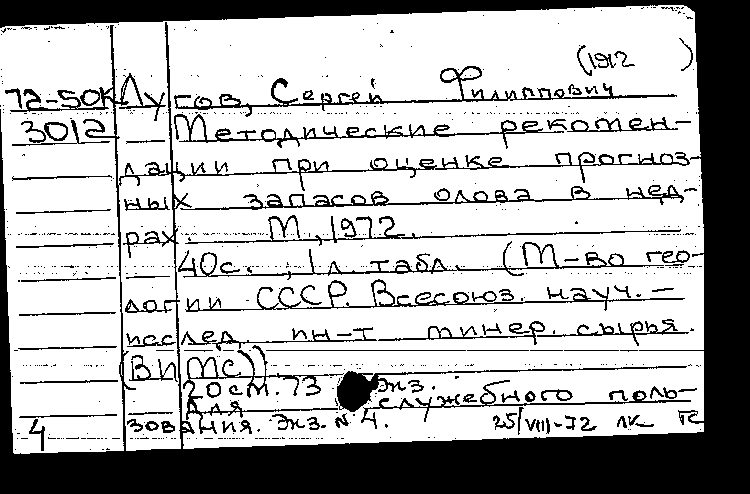 (1912 )
72-50К Лугов, Сергей Филиппович
3012 Методические рекомен-
дации при оценке прогноз-
ных запасов олова в нед-
рах. М., 1972.
40с. ; 1 л табл. (М-во гео-
логии СССР. Всесоюз. науч. -
исслед. ин-т минер. сырья.
(ВИМС))
20ст. 73 экз.
Для служебного поль-
4 зования. Экз. № 4. 25/VIII-72 ЛК